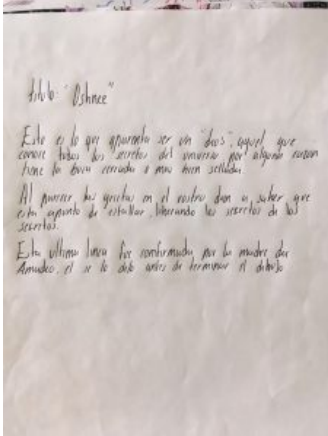 titulo: "Oshnee"
Esto es lo que aparenta ser un "dios", aquel que
conoce todos los secretos del universo por alguna razon
tiene la boca cerrada o mas bien sellada.
Al parecer, las grietas en el rostro dan a saber que
esta apunto de estallar, liberando los secretos de los
secretos.
Esta ultima linea fue confirmada por la madre de
Amadeo, el se lo dijo antes de terminar el dibujo